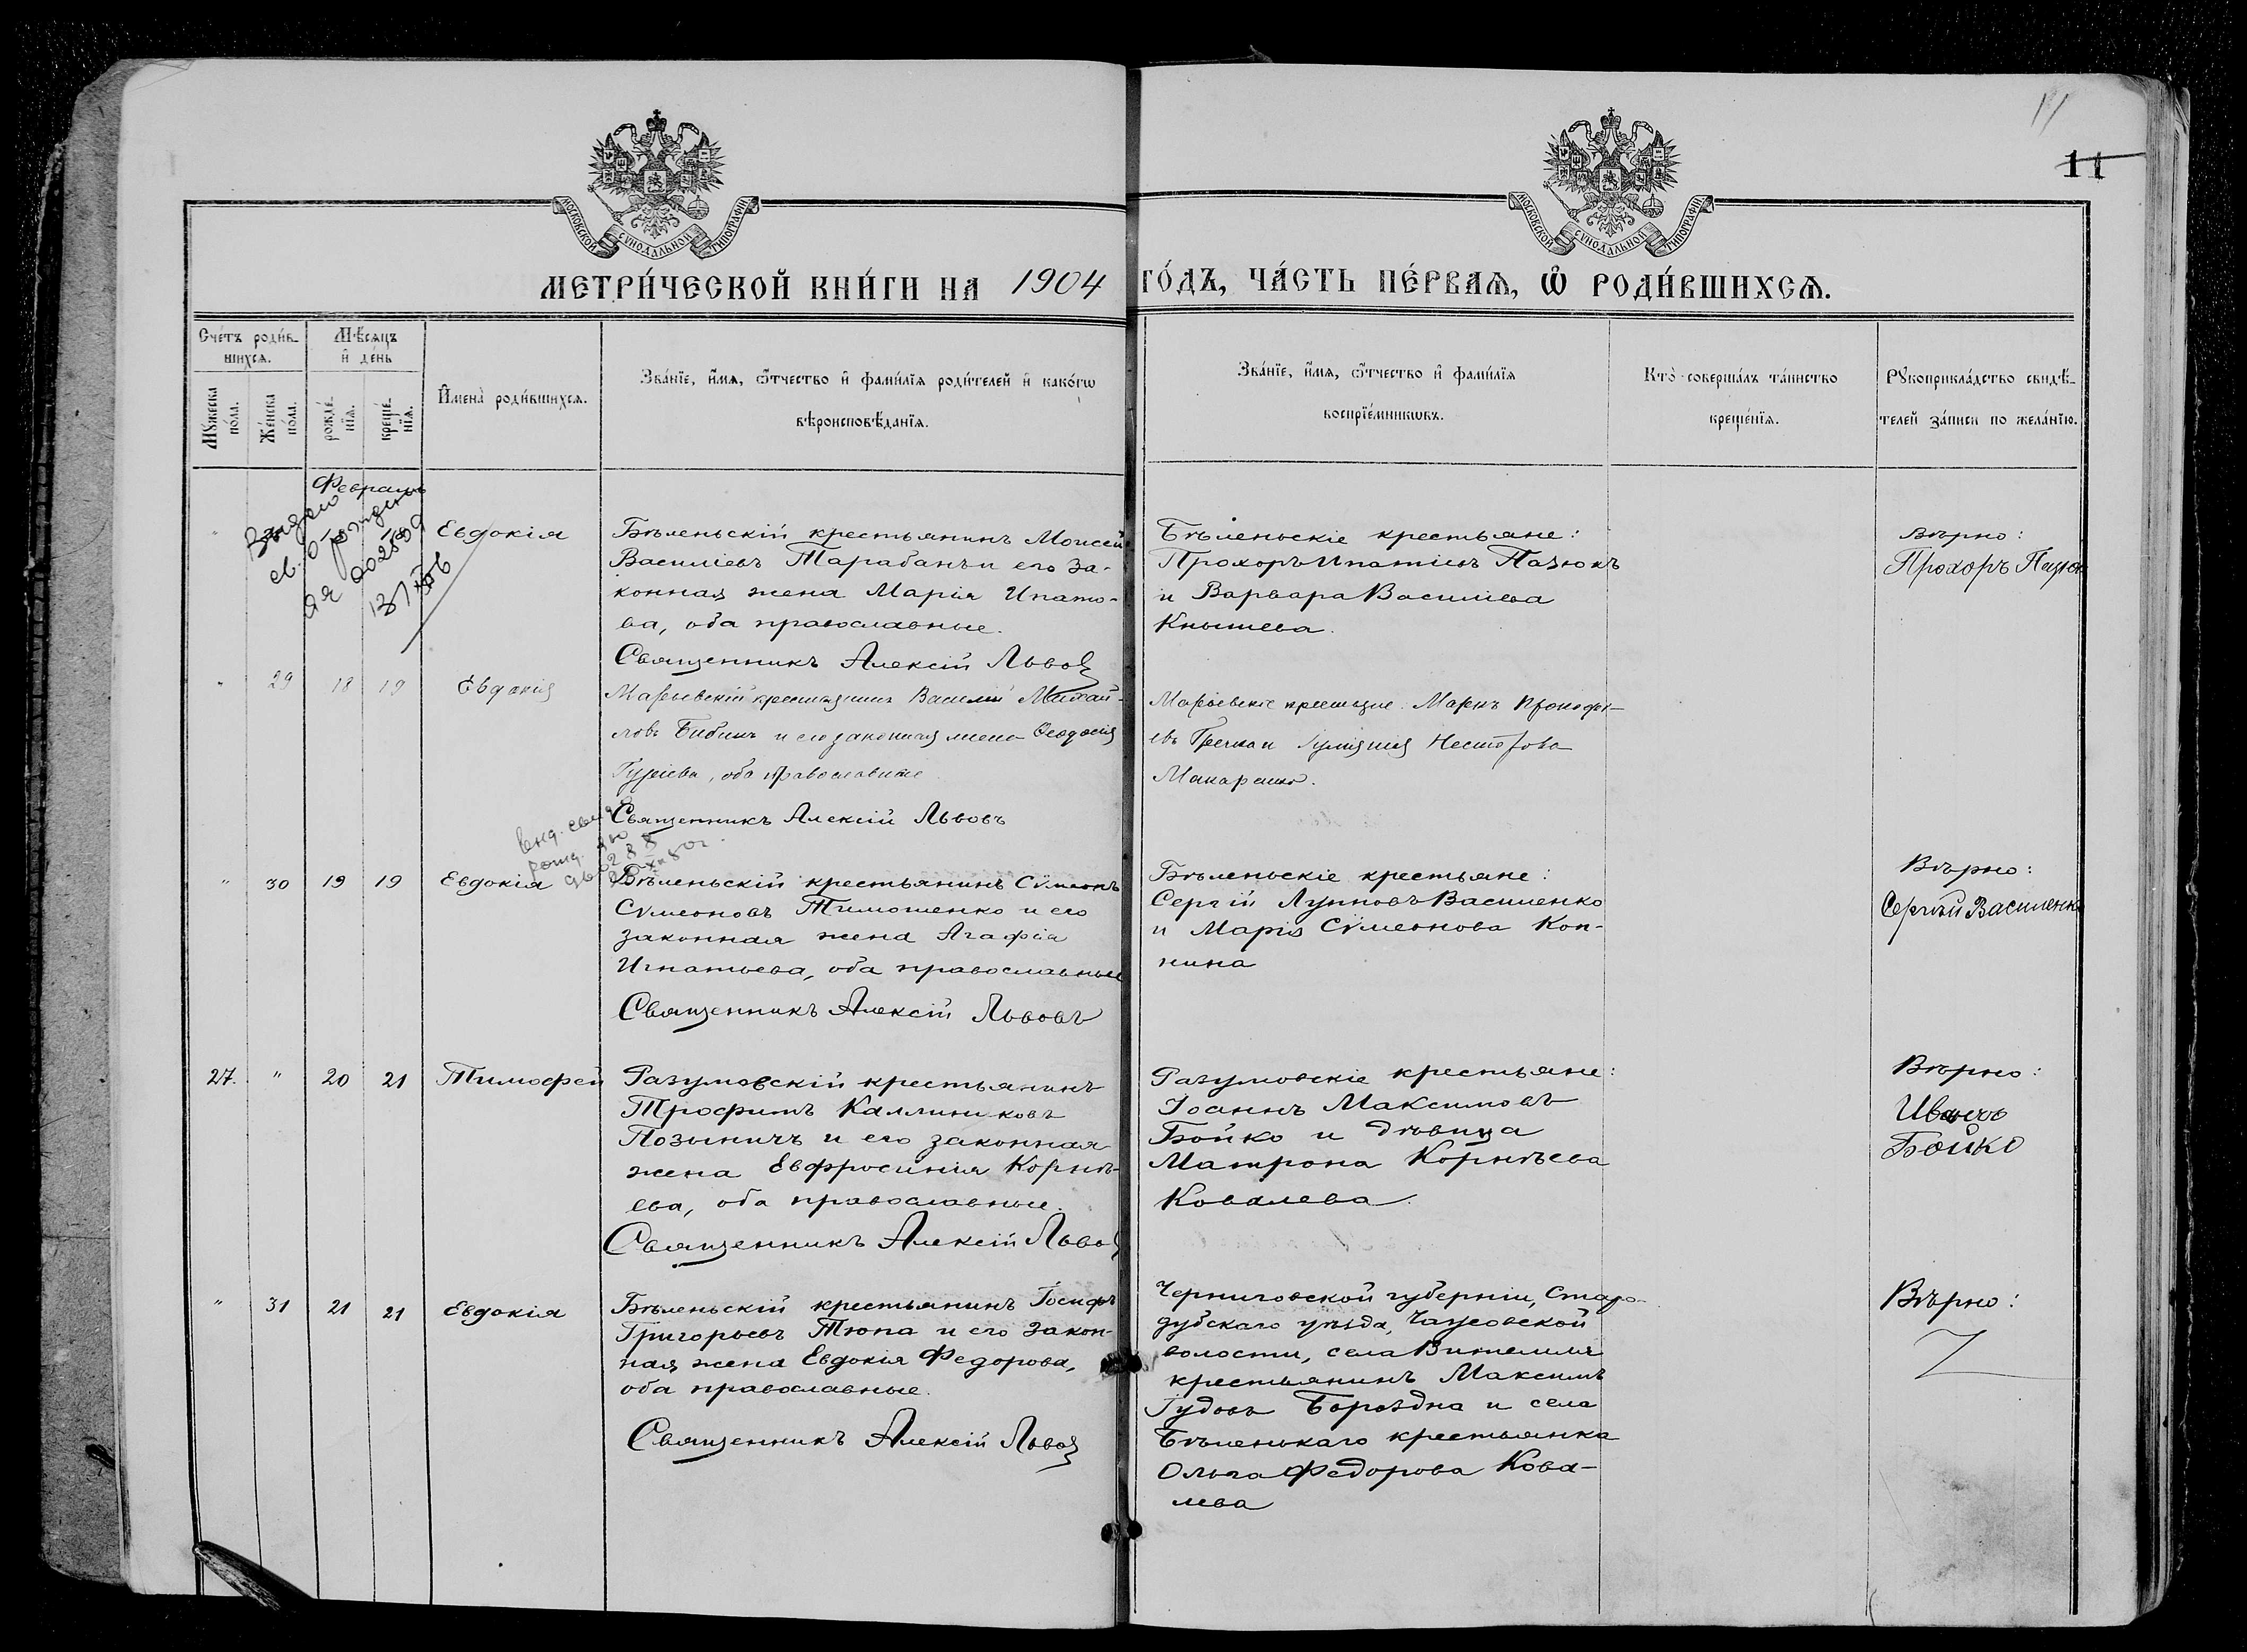 11
11
МОСКОВСКОЙ СѴНОДАЛЬНОЙ ТИПОГРАФІИ
МОСКОВСКОЙ СѴНОДАЛЬНОЙ ТИПОГРАФІИ
МЕТРИ́ЧЕСКОЙ КНИ́ГИ НА 1904 ГО́ДЪ, ЧА́СТЬ ПЕ́РВАѦ, Ѽ РОДИ́ВШИХСѦ.
Сче́тъ роди́в-
шихсѧ.
Мꙋжеска
по́ла.
Же́нска
по́ла.
Мѣ́сѧцъ
и҆ де́нь
рожде́-
нїѧ.
креще́-
нїѧ.
И҆мена̀ роди́вшихсѧ.
Зва́нїе, и҆́мѧ, ѻ҆́тчество и҆ фами́лїѧ роди́телей и҆ како́гѡ
вѣроисповѣ́данїѧ.
Зва́нїе, и҆́мѧ, ѻ҆́тчество и҆ фами́лїѧ
воспрїе́мникѡвъ.
Кто̀ соверша́лъ та́инство
креще́нїѧ.
Рꙋкоприкла́дство свидѣ́-
телей за́писи по жела́нїю.
Февраль
Евдокія
Бѣленьскій крестьянинъ Моисей
Василіевъ Тарабанъ и его за-
конная жена Марія Ипато-
ва, оба православные.
Священникъ Алексій Львовъ
Бѣленьскіе крестьяне:
Прохоръ Ипатіевъ Пазюкъ
и Варвара Василіева
Кнышева.
Вѣрно:
Прохоръ Пазюк
" 29 18 19 Евдокія
Марьевскій крестьянинъ Василій Михай-
ловъ Бибикъ и его законная жена Ѳеодосія
Гуріева, оба православные
Священникъ Алексій Львовъ
Марьевскіе крестьяне Маркъ Прокофі-
евъ Гречка и Несторова
Макаренко.
" 30 19 19 Евдокія
Бѣленьскій крестьянинъ Сѵмеонъ
Сѵмеоновъ Тимошенко и его
законная жена Агафія
Игнатьева, оба православные
Священникъ Алексій Львовъ
Бѣленьскіе крестьяне:
Сергій Лупповъ Василенко
и Марія Сѵмеонова Коп-
нина
Вѣрно:
Сергѣй Василенко
27. " 20 21 Тимофей
Разумовскій крестьянинъ
Трофимъ Каллиниковъ
Позыничъ и его законная
жена Евфросинія Корнѣ-
ева, оба православные.
Священникъ Алексій Львовъ
Разумовскіе крестьяне:
Іоаннъ Максимовъ
Бойко и дѣвица
Матрона Корнѣева
Ковалева.
Вѣрно:
Иванъ
Бойко
" 31 21 21 Евдокія
Бѣленьскій крестьянинъ Іосифъ
Григорьевъ Тюпа и его закон-
ная жена Евдокія Федорова,
оба православные.
Священникъ Алексій Львовъ
Черниговской губерніи, Старо-
дубскаго уѣзда, волости, села
крестьянинъ Максимъ
Гудовъ Бороздна и села
Бѣленькаго крестьянка
Ольга Федорова Кова-
лева
Вѣрно: